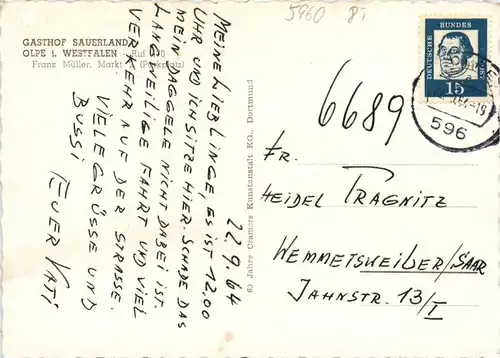 5960 8i
GASTHOF SAUERLAND
OLPE i. WESTFALEN - Ruf
Franz Müller, Markt (Parkplatz)
22.9.64
MEINE LIEBLINGE, ES IST 12.00
UHR UND ICH SITZE HIER. SCHADE DAS
MEIN DAGGELE NICHT DABEI IST.
LANGWEILIGE FAHRT UND VIEL
VERKEHR AUF DER STRASSE.
VIELE GRÜSSE UND
BUSSI EUER VATI
60 Jahre Cramers Kunstanstalt KG., Dortmund
DEUTSCHE BUNDESPOST
15
596
6689
FR.
HEIDEL TRAGNITZ
WEMMETSWEILER/SAAR
JAHNSTR. 13/I